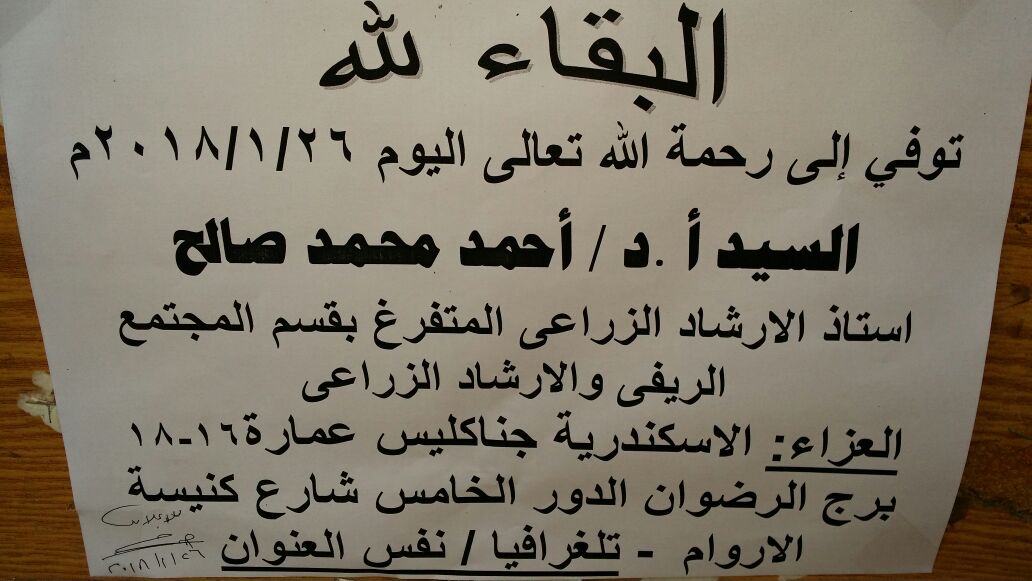 البقاء لله
توفي إلى رحمة الله تعالى اليوم ٢٠١٨/١/٢٦م
السيد أ .د / أحمد محمد صالح
استاذ الارشاد الزراعى المتفرغ بقسم المجتمع
الريفى والارشاد الزراعى
العزاء: الاسكندرية جناكليس عمارة١٦-١٨
برج الرضوان الدور الخامس شارع كنيسة
الاروام - تلغرافيا / نفس العنوان
للإعلان
٢٠١٨/١/٢٦